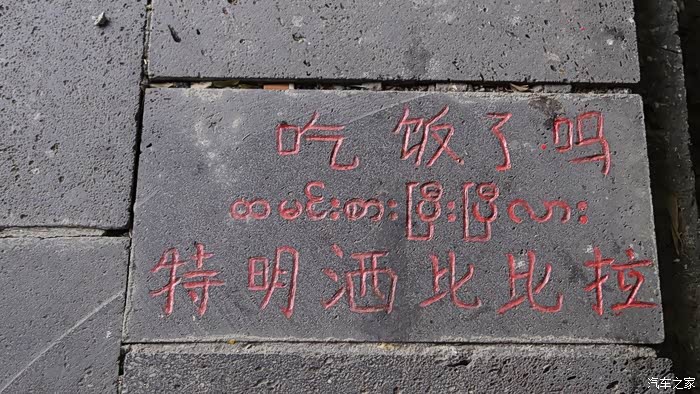 吃饭了吗
ထမင်းစားပြီးပြီလား
特明洒比比拉
汽车之家